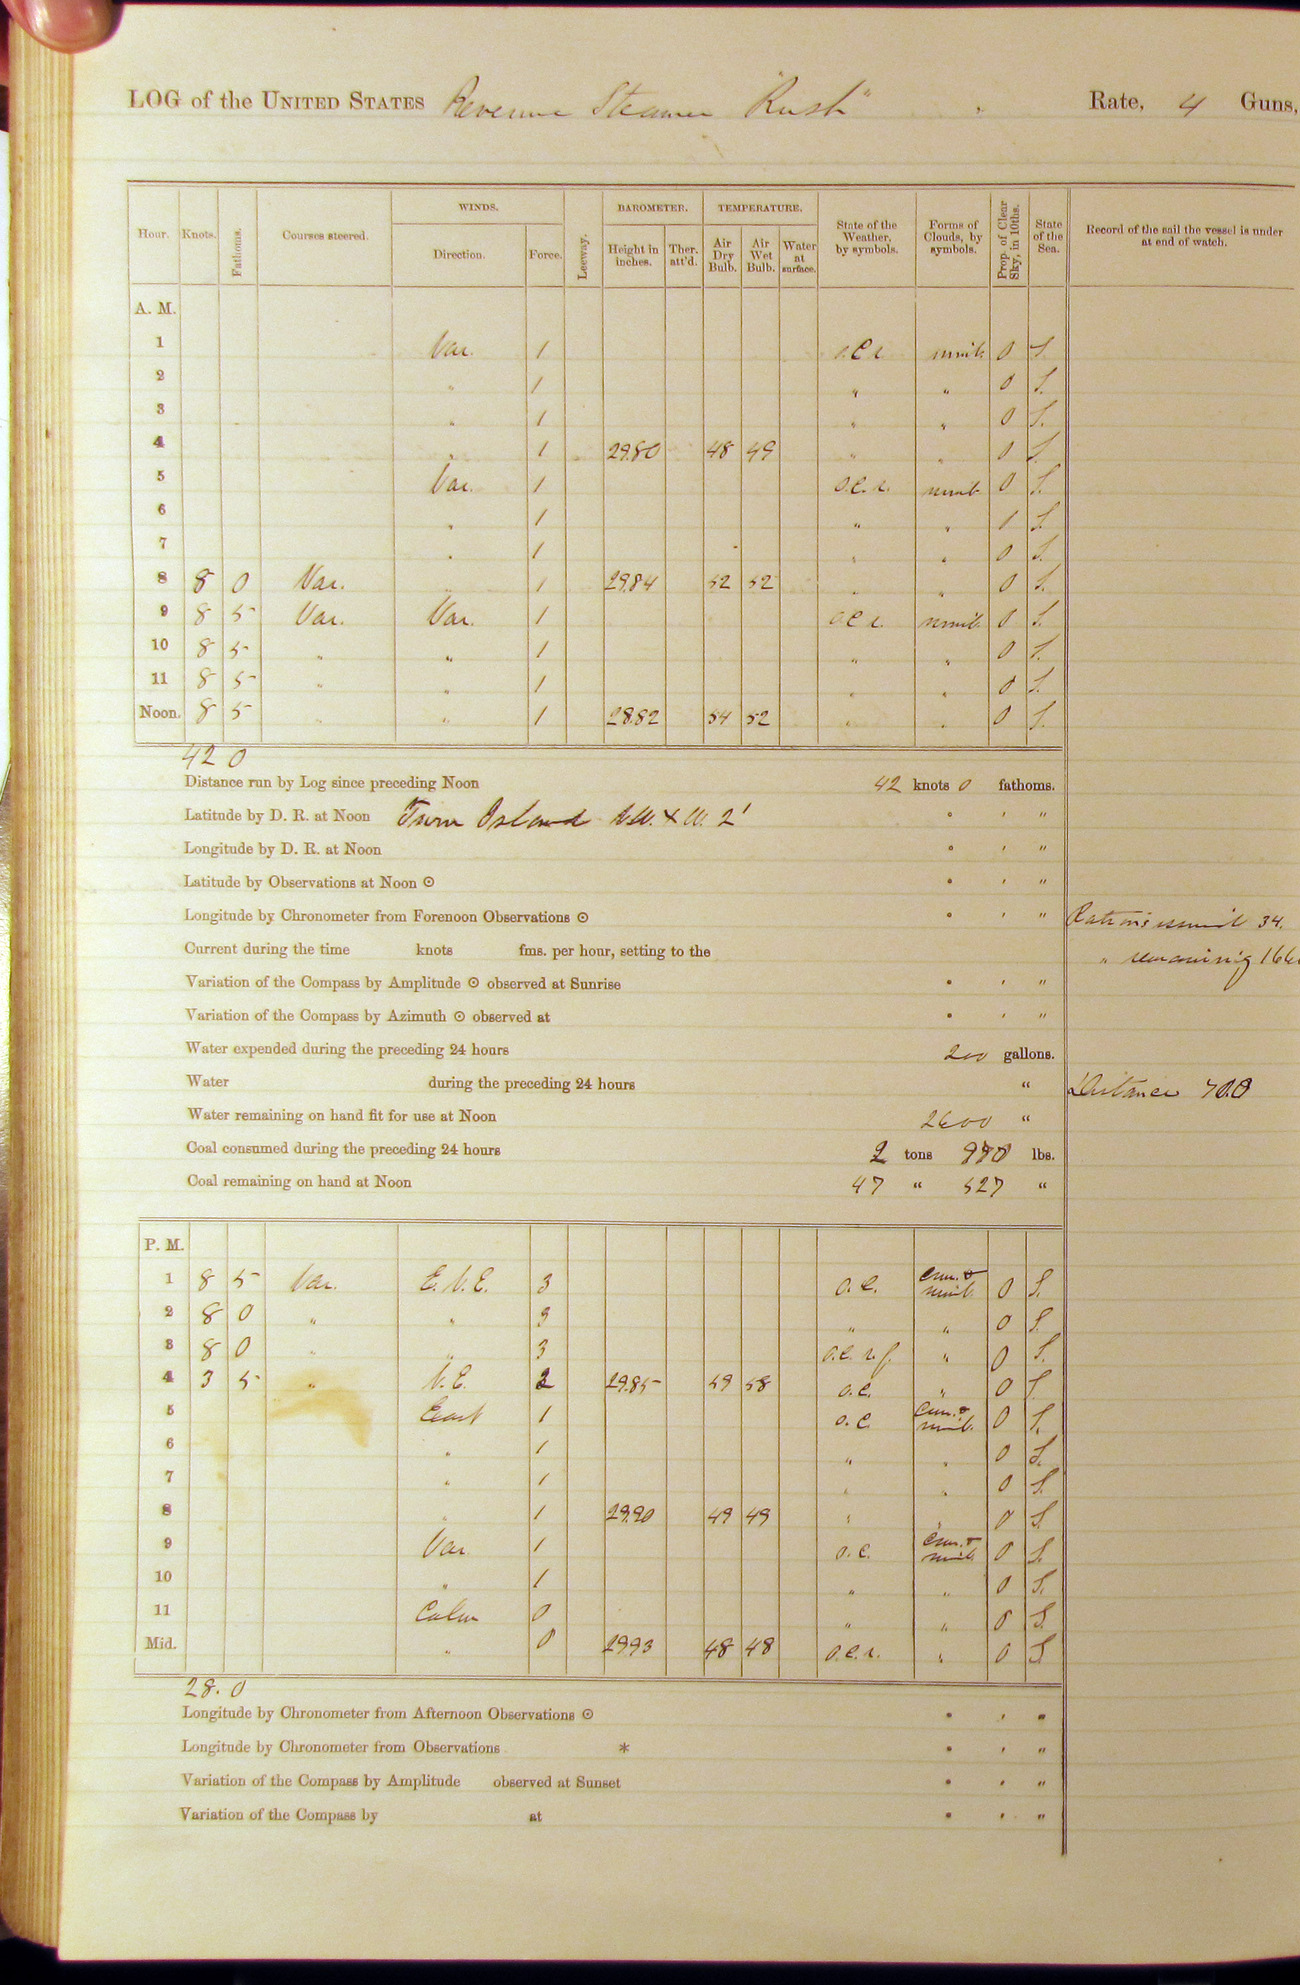 LOG of the UNITED STATES Revenue Steamer "Rush" Rate, 4 Guns,
WINDS. BAROMETER. TEMPERATURE.
Hour. Knots. Fathoms. Courses steered. Direction. Force. Leeway. Height in inches. Ther. att'd. Air Dry Bulb. Air Wet Bulb. Water at surface. State of the Weather, by symbols. Forms of Clouds, by symbols. Prop. of Clear Sky, in 10ths. State of the Sea. Record of the sail the vessel is under at end of watch.
A. M.
1 Var. 1 o.c.r. nimb. 0 S.
2 " 1 " " 0 S.
3 " 1 " " 0 S.
4 " 1 29.80 48 49 " " 0 S.
5 Var. 1 o.c.r. nimb. 0 S.
6 " 1 " " 1 S.
7 " 1 " " 0 S.
8 8 0 Var. " 1 29.84 52 52 " " 0 S.
9 8 5 Var. Var. 1 o.c.r. nimb. 0 S.
10 8 5 " " 1 " " 0 S.
11 8 5 " " 1 " " 0 S.
Noon. 8 5 " " 1 28.82 54 52 " " 0 S.
42 0
Distance run by Log since preceding Noon 42 knots 0 fathoms.
Latitude by D. R. at Noon Turn Island N.W. x W. 2' ° ' "
Longitude by D. R. at Noon ° ' "
Latitude by Observations at Noon ☉ ° ' "
Longitude by Chronometer from Forenoon Observations ☉ ° ' " Rations issued 34.
Current during the time knots fms. per hour, setting to the " remaining 166
Variation of the Compass by Amplitude ☉ observed at Sunrise ° ' "
Variation of the Compass by Azimuth ☉ observed at ° ' "
Water expended during the preceding 24 hours 200 gallons.
Water during the preceding 24 hours " Distance 70.0
Water remaining on hand fit for use at Noon 2600 "
Coal consumed during the preceding 24 hours 2 tons lbs.
Coal remaining on hand at Noon 47 " 527 "
P. M.
1 8 5 Var. E.N.E. 3 o.c. cum. & nimb. 0 S.
2 8 0 " " 3 " " 0 S.
3 8 0 " " 3 o.c.r.f. " 0 S.
4 3 5 " N.E. 2 29.85 59 58 o.c. " 0 S.
5 East 1 o.c. cum. & nimb. 0 S.
6 " 1 " " 0 S.
7 " 1 " " 0 S.
8 " 1 29.90 49 49 " " 0 S.
9 Var. 1 o.c. cum. & nimb. 0 S.
10 " 1 " " 0 S.
11 Calm 0 " " 0 S.
Mid. " 0 29.93 48 48 o.c.r. " 0 S.
28. 0
Longitude by Chronometer from Afternoon Observations ☉ ° ' "
Longitude by Chronometer from Observations * ° ' "
Variation of the Compass by Amplitude observed at Sunset ° ' "
Variation of the Compass by at ° ' "